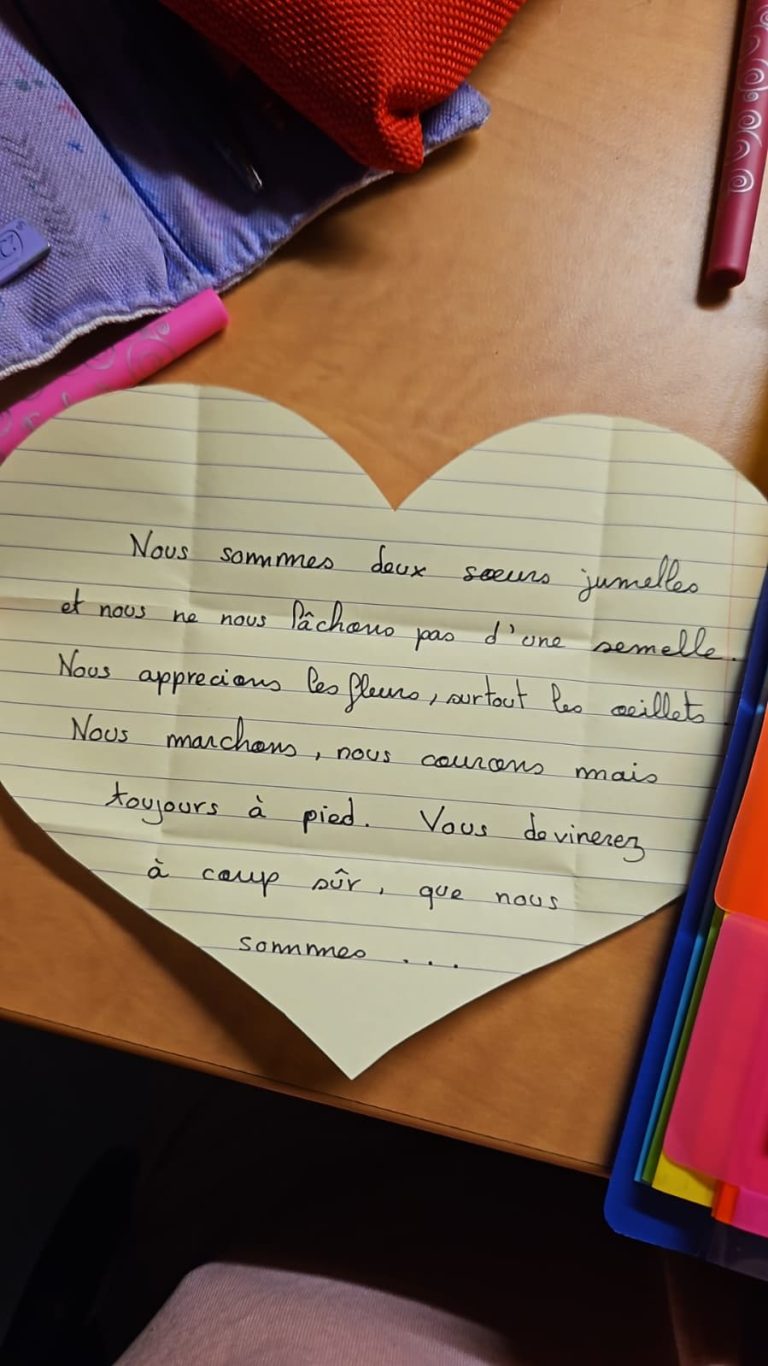 Nous sommes deux sœurs jumelles
et nous ne nous lâchons pas d'une semelle.
Nous apprecions les fleurs, surtout les œillets.
Nous marchons, nous courons mais
toujours à pied. Vous devinerez
à coup sûr, que nous
sommes ...